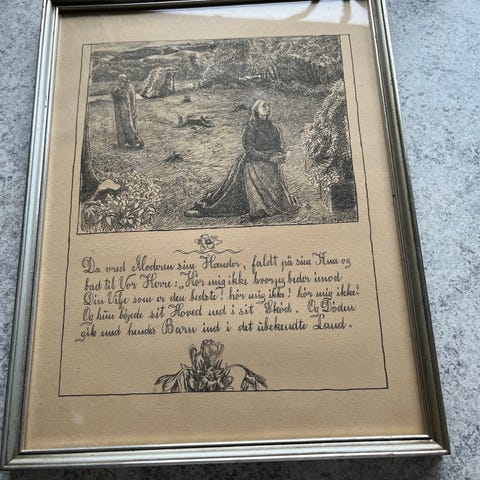 Da vred Moderen sine Hænder, faldt på sine Knæ og
bad til Vor Herre: „Hør mig ikke hvor jeg beder imod
Din Vilje som er den bedste! hør mig ikke! hør mig ikke!
Og hun bøjede sit Hoved ned i sit Skød. Og Døden
gik med hendes Barn ind i det ubekendte Land.